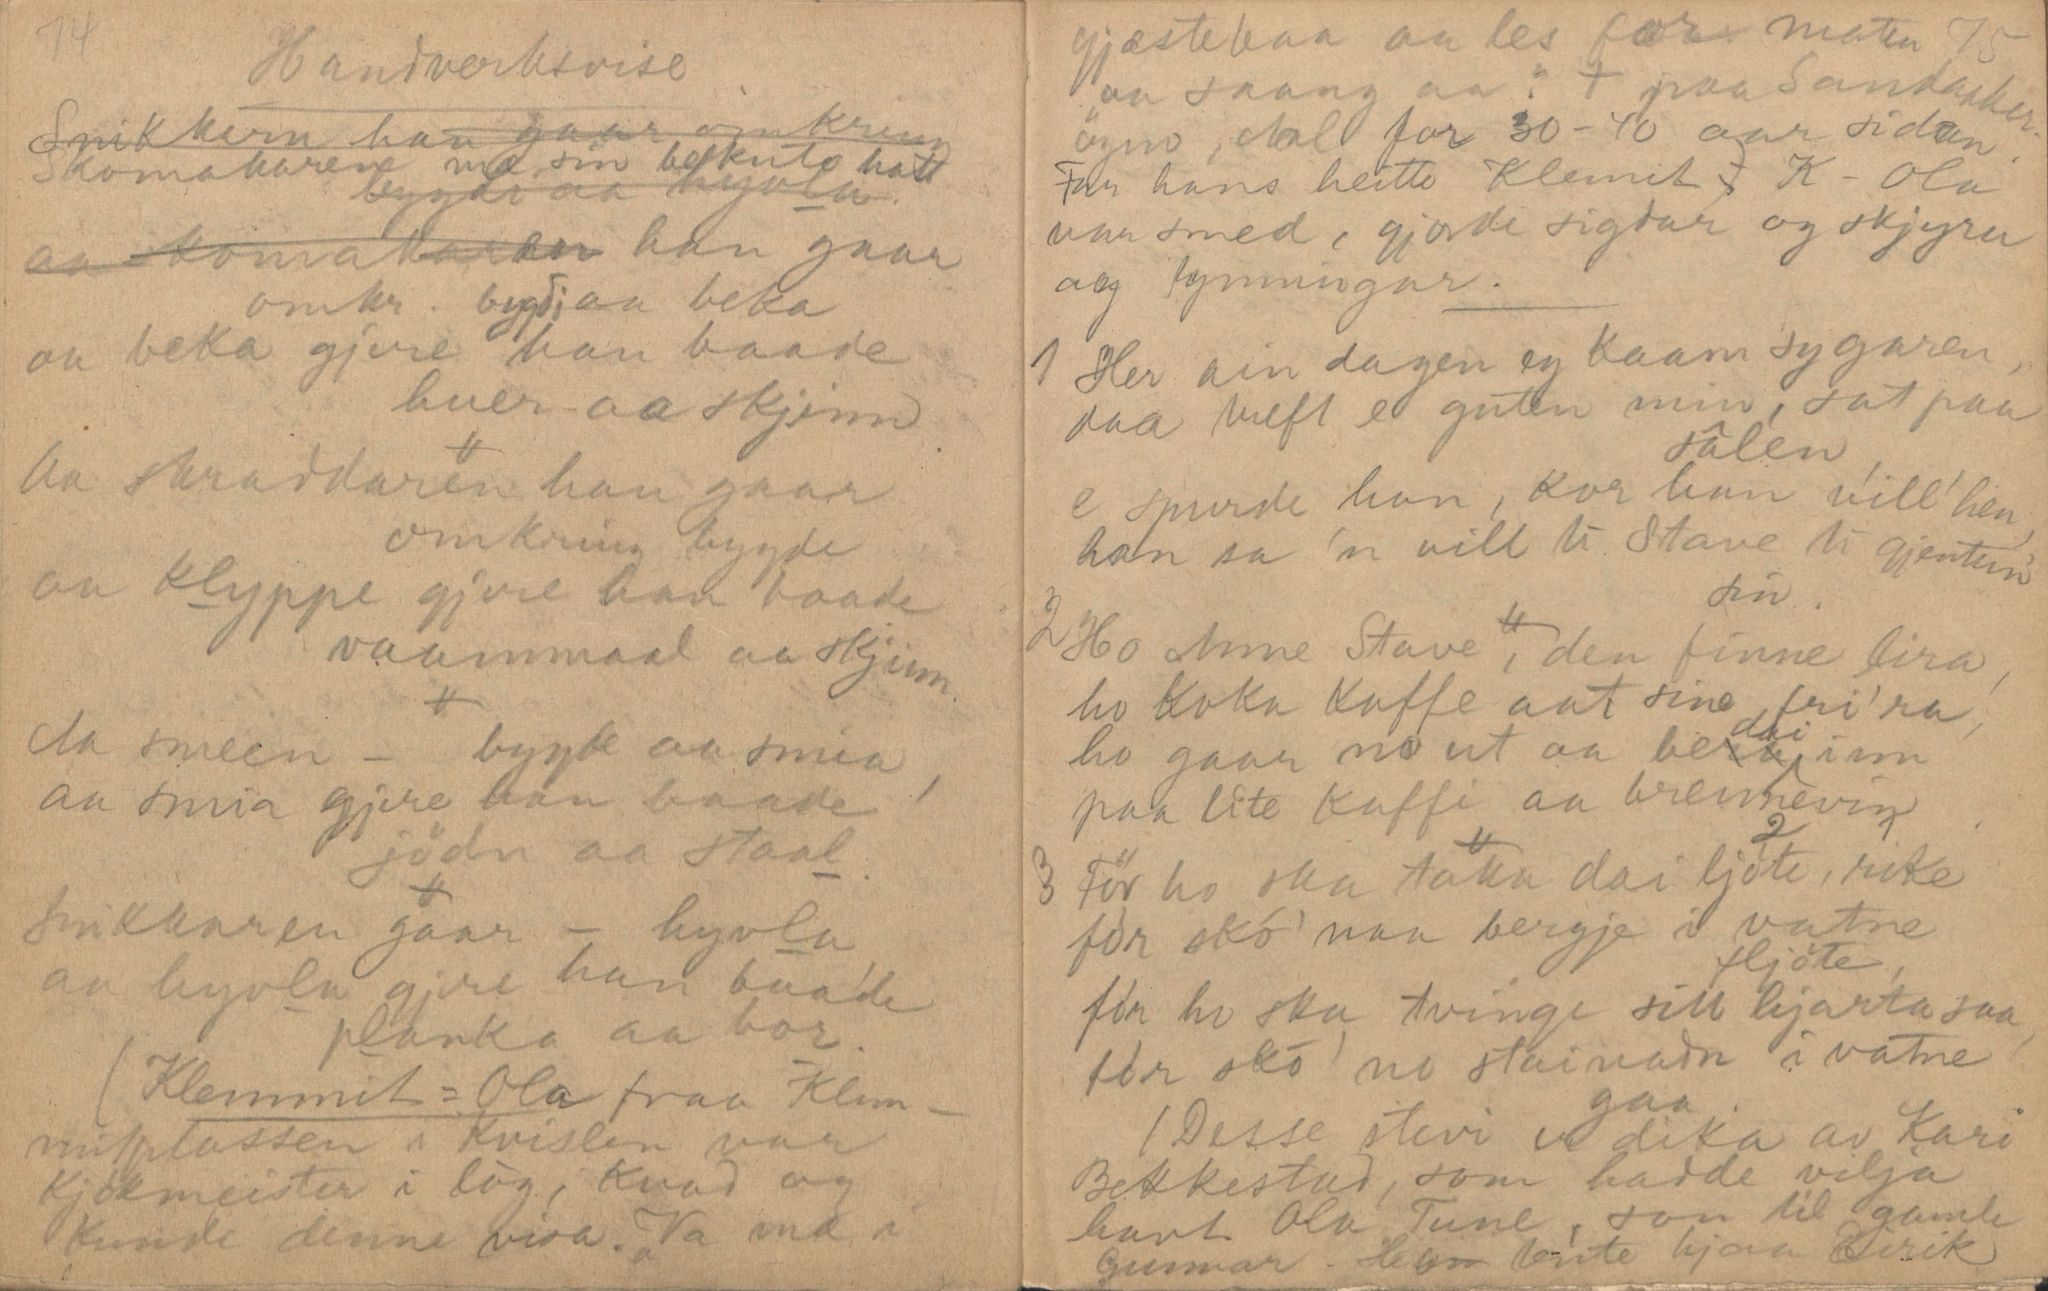 74
Handverksvise
Snikkarn han gaar omkring
Skomakaren mæ sin bekute hatt
bygdi aa hyvla.
aa skomakaren han gaar
omkr. bygdi aa beka
aa beka gjere han baade
huer aa skjinn.
Aa skraddaren han gaar
omkring bygde
aa klyppe gjere han baade
vaammaal aa skjinn.
Aa smeen – bygde aa smia,
aa smia gjere han baade
jödn aa staal.
Snikkaren gaar – hyvla,
aa hyvla gjere han baade
planka aa bor.
(Klemmit-Ola fraa Klem-
mitplassen i Kvislen var
kjökmeister i lög, kvad og
kunde denne visa. Va mæ i
gjæstebaa aa les for maten 75
aa saang aa". † paa Sandaker-
ögno, Aal for 30-40 aar sidan.
Far hans heitte Klemit. K-Ola
var smed, gjorde sigdar og skjyru
og tynningar.
1 Her ain dagen eg kaam sygaren,
daa treft e guten min, sat paa
sâlen,
e spurde han, kor han vill' hen,
han sa 'n vill ti Stave ti gjenten
sin.
2 Ho Anne Stave, den finne lira,
ho koka kaffe aat sine fri'ra,
ho gaar no ut aa be dai inn
paa lite kaffi aa brennevin.
3 För ho ska taka dai ljöte, rike
för skó' naa bergje i vatne
fljöte,
för ho ska tvinge sitt hjarta saa,
för skó' no stainadn i vatne
gaa.
(Desse stevi er dikta av Kari
Bekkestad, som hadde vilja
havt Ola Tune, son til gamle
Gunnar. Han tente hjaa Eirik